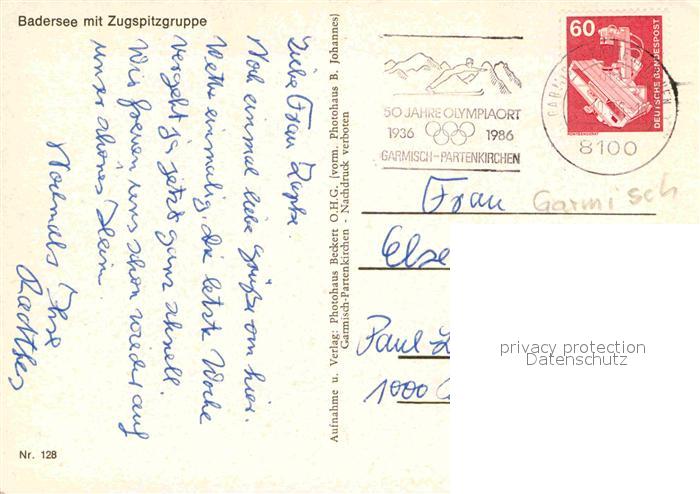 Badersee mit Zugspitzgruppe
Liebe Frau
Noch einmal liebe Grüße von hier.
Wetter einmalig, die letzte Woche
vergeht ja jetzt ganz schnell.
Wir freuen uns schon wieder auf
unser schönes Heim.
Nochmals Ihre
Nr. 128
Aufnahme u. Verlag: Photohaus Beckert O.H.G. (vorm. Photohaus B. Johannes)
Garmisch-Partenkirchen - Nachdruck verboten
50 JAHRE OLYMPIAORT
1936 1986
GARMISCH-PARTENKIRCHEN
60
DEUTSCHE BUNDESPOST
8100
Frau Garmisch
Else
Paul
1000
privacy protection
Datenschutz